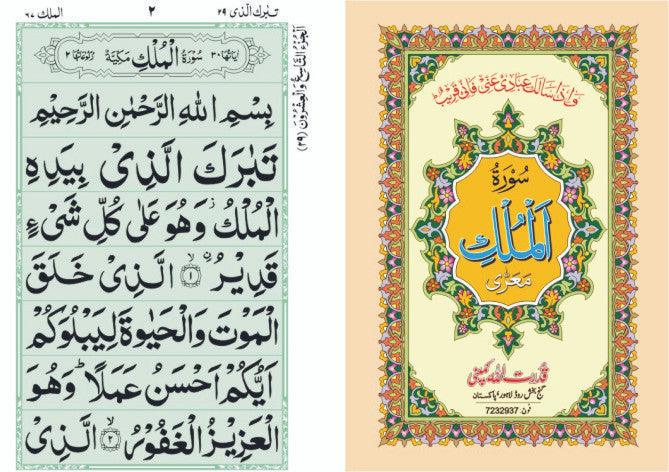 تَبٰرَكَ الَّذِیْ ٢٩
٢
الملك ٦٧
اٰیَاتُهَا ٣٠ سُوْرَةُ الْمُلْكِ مَكِّيَّةٌ رُكُوْعَاتُهَا ٢
اَلْجُزْءُ التَّاسِعُ وَالْعِشْرُوْنَ (٢٩)
بِسْمِ اللّٰهِ الرَّحْمٰنِ الرَّحِيْمِ
تَبٰرَكَ الَّذِیْ بِیَدِهِ
الْمُلْكُ ؗ وَهُوَ عَلٰی كُلِّ شَیْءٍ
قَدِیْرُ ۙ ﴿١﴾ الَّذِیْ خَلَقَ
الْمَوْتَ وَالْحَیٰوةَ لِیَبْلُوَكُمْ
اَیُّكُمْ اَحْسَنُ عَمَلًا ؕ وَهُوَ
الْعَزِیْزُ الْغَفُوْرُ ۙ ﴿٢﴾ الَّذِیْ
وَاِذَا سَاَلَكَ عِبَادِیْ عَنِّیْ فَاِنِّیْ قَرِیْبٌ ؕ
سُوْرَةُ
اَلْمُلْكُ
مَعَرّٰی
قدرت اللہ کمپنی
گنج بخش روڈ لاہور، پاکستان
فون: 7232937